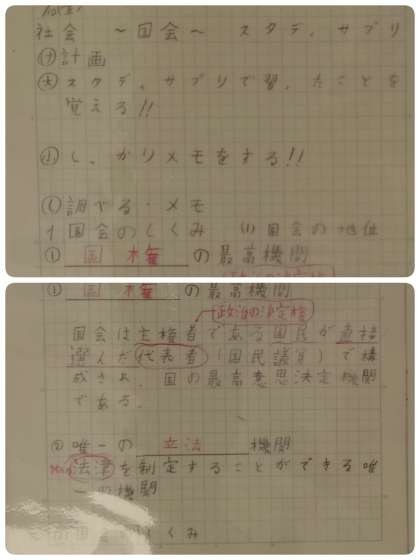 社会 〜国会〜 スタディサプリ
㋘計画
㊅スタディサプリで習ったことを
覚える!!
㋛しっかりメモをする!!
㋛調べる・メモ
1 国会のしくみ (1) 国会の地位
① 国権 の最高機関
① 国権 の最高機関
政治の決定権
国会は主権者である国民が直接
選んだ代表者(国民議員)で構
成され、国の最高意思決定機関
である。
② 唯一の 立法 機関
法律を制定することができる唯
一の機関
くみ